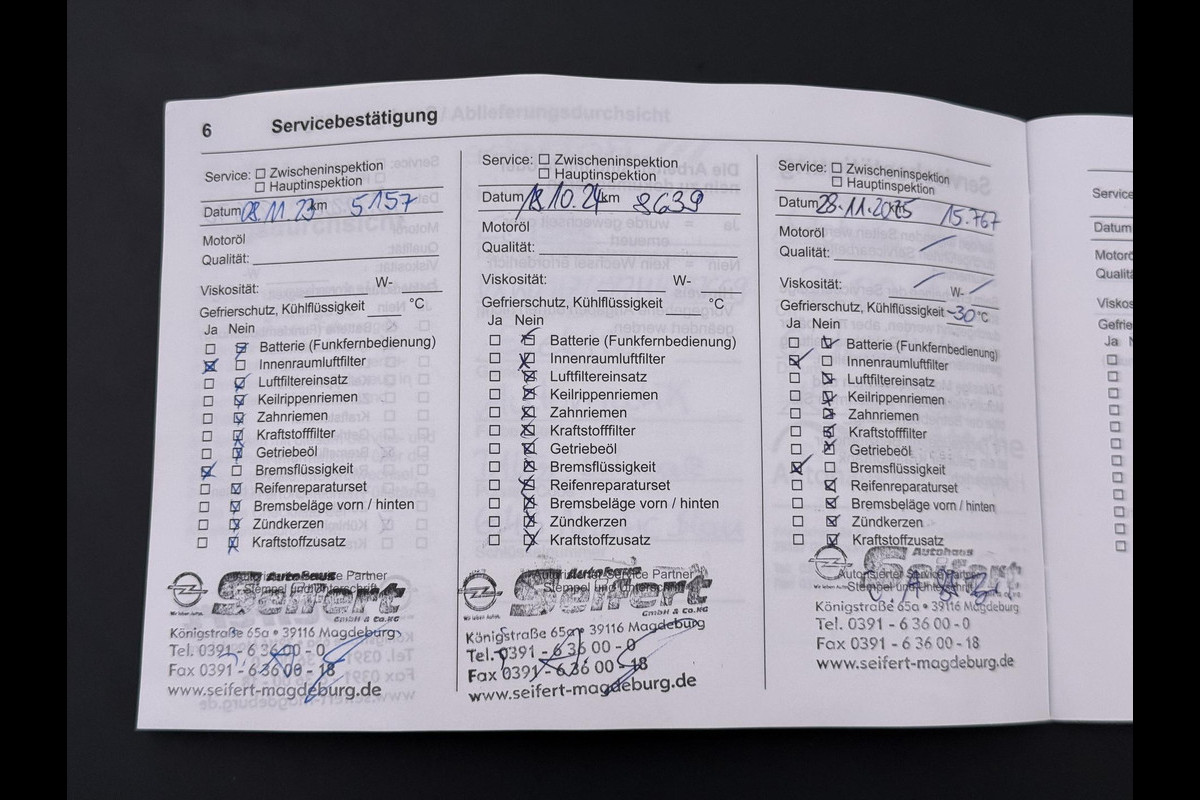 6 Servicebestätigung
Service: ☐ Zwischeninspektion
☐ Hauptinspektion
Datum 08.11.23 km 5157
Motoröl
Qualität:
Viskosität: W-
Gefrierschutz, Kühlflüssigkeit °C
Ja Nein
☐ ☒ Batterie (Funkfernbedienung)
☒ ☐ Innenraumluftfilter
☐ ☒ Luftfiltereinsatz
☐ ☒ Keilrippenriemen
☐ ☒ Zahnriemen
☐ ☒ Kraftstofffilter
☐ ☒ Getriebeöl
☒ ☐ Bremsflüssigkeit
☐ ☒ Reifenreparaturset
☐ ☒ Bremsbeläge vorn / hinten
☐ ☒ Zündkerzen
☐ ☒ Kraftstoffzusatz
Autorisierter Service Partner
Stempel und Unterschrift
Autohaus
Seifert
GmbH & Co.KG
Königstraße 65a • 39116 Magdeburg
Tel. 0391 - 6 36 00 - 0
Fax 0391 - 6 36 00 - 18
www.seifert-magdeburg.de
Service: ☐ Zwischeninspektion
☐ Hauptinspektion
Datum 18.10.24 km 8639
Motoröl
Qualität:
Viskosität: W-
Gefrierschutz, Kühlflüssigkeit °C
Ja Nein
☐ ☒ Batterie (Funkfernbedienung)
☐ ☒ Innenraumluftfilter
☐ ☒ Luftfiltereinsatz
☐ ☒ Keilrippenriemen
☐ ☒ Zahnriemen
☐ ☒ Kraftstofffilter
☐ ☒ Getriebeöl
☐ ☒ Bremsflüssigkeit
☐ ☒ Reifenreparaturset
☐ ☒ Bremsbeläge vorn / hinten
☐ ☒ Zündkerzen
☐ ☒ Kraftstoffzusatz
Autorisierter Service Partner
Stempel und Unterschrift
Autohaus
Seifert
GmbH & Co.KG
Königstraße 65a • 39116 Magdeburg
Tel. 0391 - 6 36 00 - 0
Fax 0391 - 6 36 00 - 18
www.seifert-magdeburg.de
Service: ☐ Zwischeninspektion
☐ Hauptinspektion
Datum 28.11.2025 15.767
Motoröl
Qualität: /
Viskosität: / W- /
Gefrierschutz, Kühlflüssigkeit -30 °C
Ja Nein
☐ ☒ Batterie (Funkfernbedienung)
☒ ☐ Innenraumluftfilter
☐ ☒ Luftfiltereinsatz
☐ ☒ Keilrippenriemen
☐ ☒ Zahnriemen
☐ ☒ Kraftstofffilter
☐ ☒ Getriebeöl
☒ ☐ Bremsflüssigkeit
☐ ☒ Reifenreparaturset
☐ ☒ Bremsbeläge vorn / hinten
☐ ☒ Zündkerzen
☐ ☒ Kraftstoffzusatz
Autorisierter Service Partner
Stempel und Unterschrift
Autohaus
Seifert
Königstraße 65a • 39116 Magdeburg
Tel. 0391 - 6 36 00 - 0
Fax 0391 - 6 36 00 - 18
www.seifert-magdeburg.de
Service
Datum
Ja N